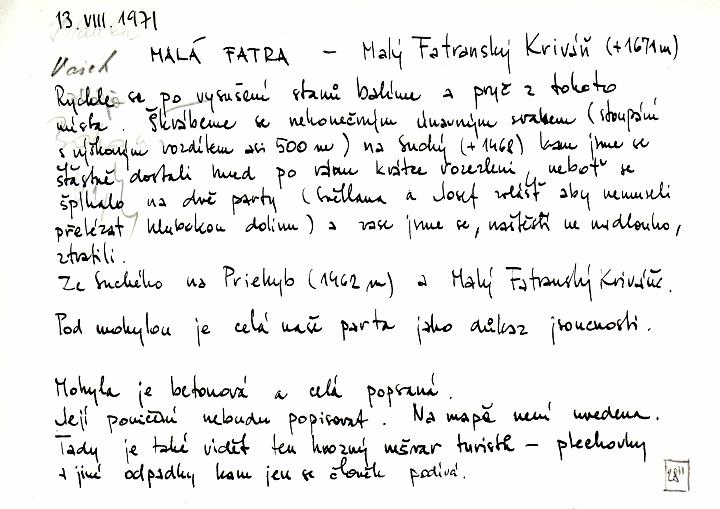 13. VIII. 1971
Vašek MALÁ FATRA – Malý Fatranský Kriváň (+1671 m)
Rychle se po vysušení stanů balíme a pryč z tohoto
místa. Škrábeme se nekonečným únavným svahem (stoupání
s výškovým rozdílem asi 500 m) na Suchý (+1468) kam jsme se
šťastně dostali hned po ránu krátce rozezlení, neboť se
šplhalo na dvě party (Světlana a Josef zvlášť aby nemuseli
přelézat hlubokou dolinu) a zase jsme se, naštěstí ne nadlouho,
ztratili.
Ze Suchého na Priehyb (1462 m) a Malý Fatranský Kriváň.
Pod mohylou je celá naše parta jako důkaz jsoucnosti.
Mohyla je betonová a celá popsaná.
Její poničení nebudu popisovat. Na mapě není uvedena.
Tady je také vidět ten hrozný nešvar turistů – plechovky
a jiné odpadky kam jen se člověk podívá.
28"